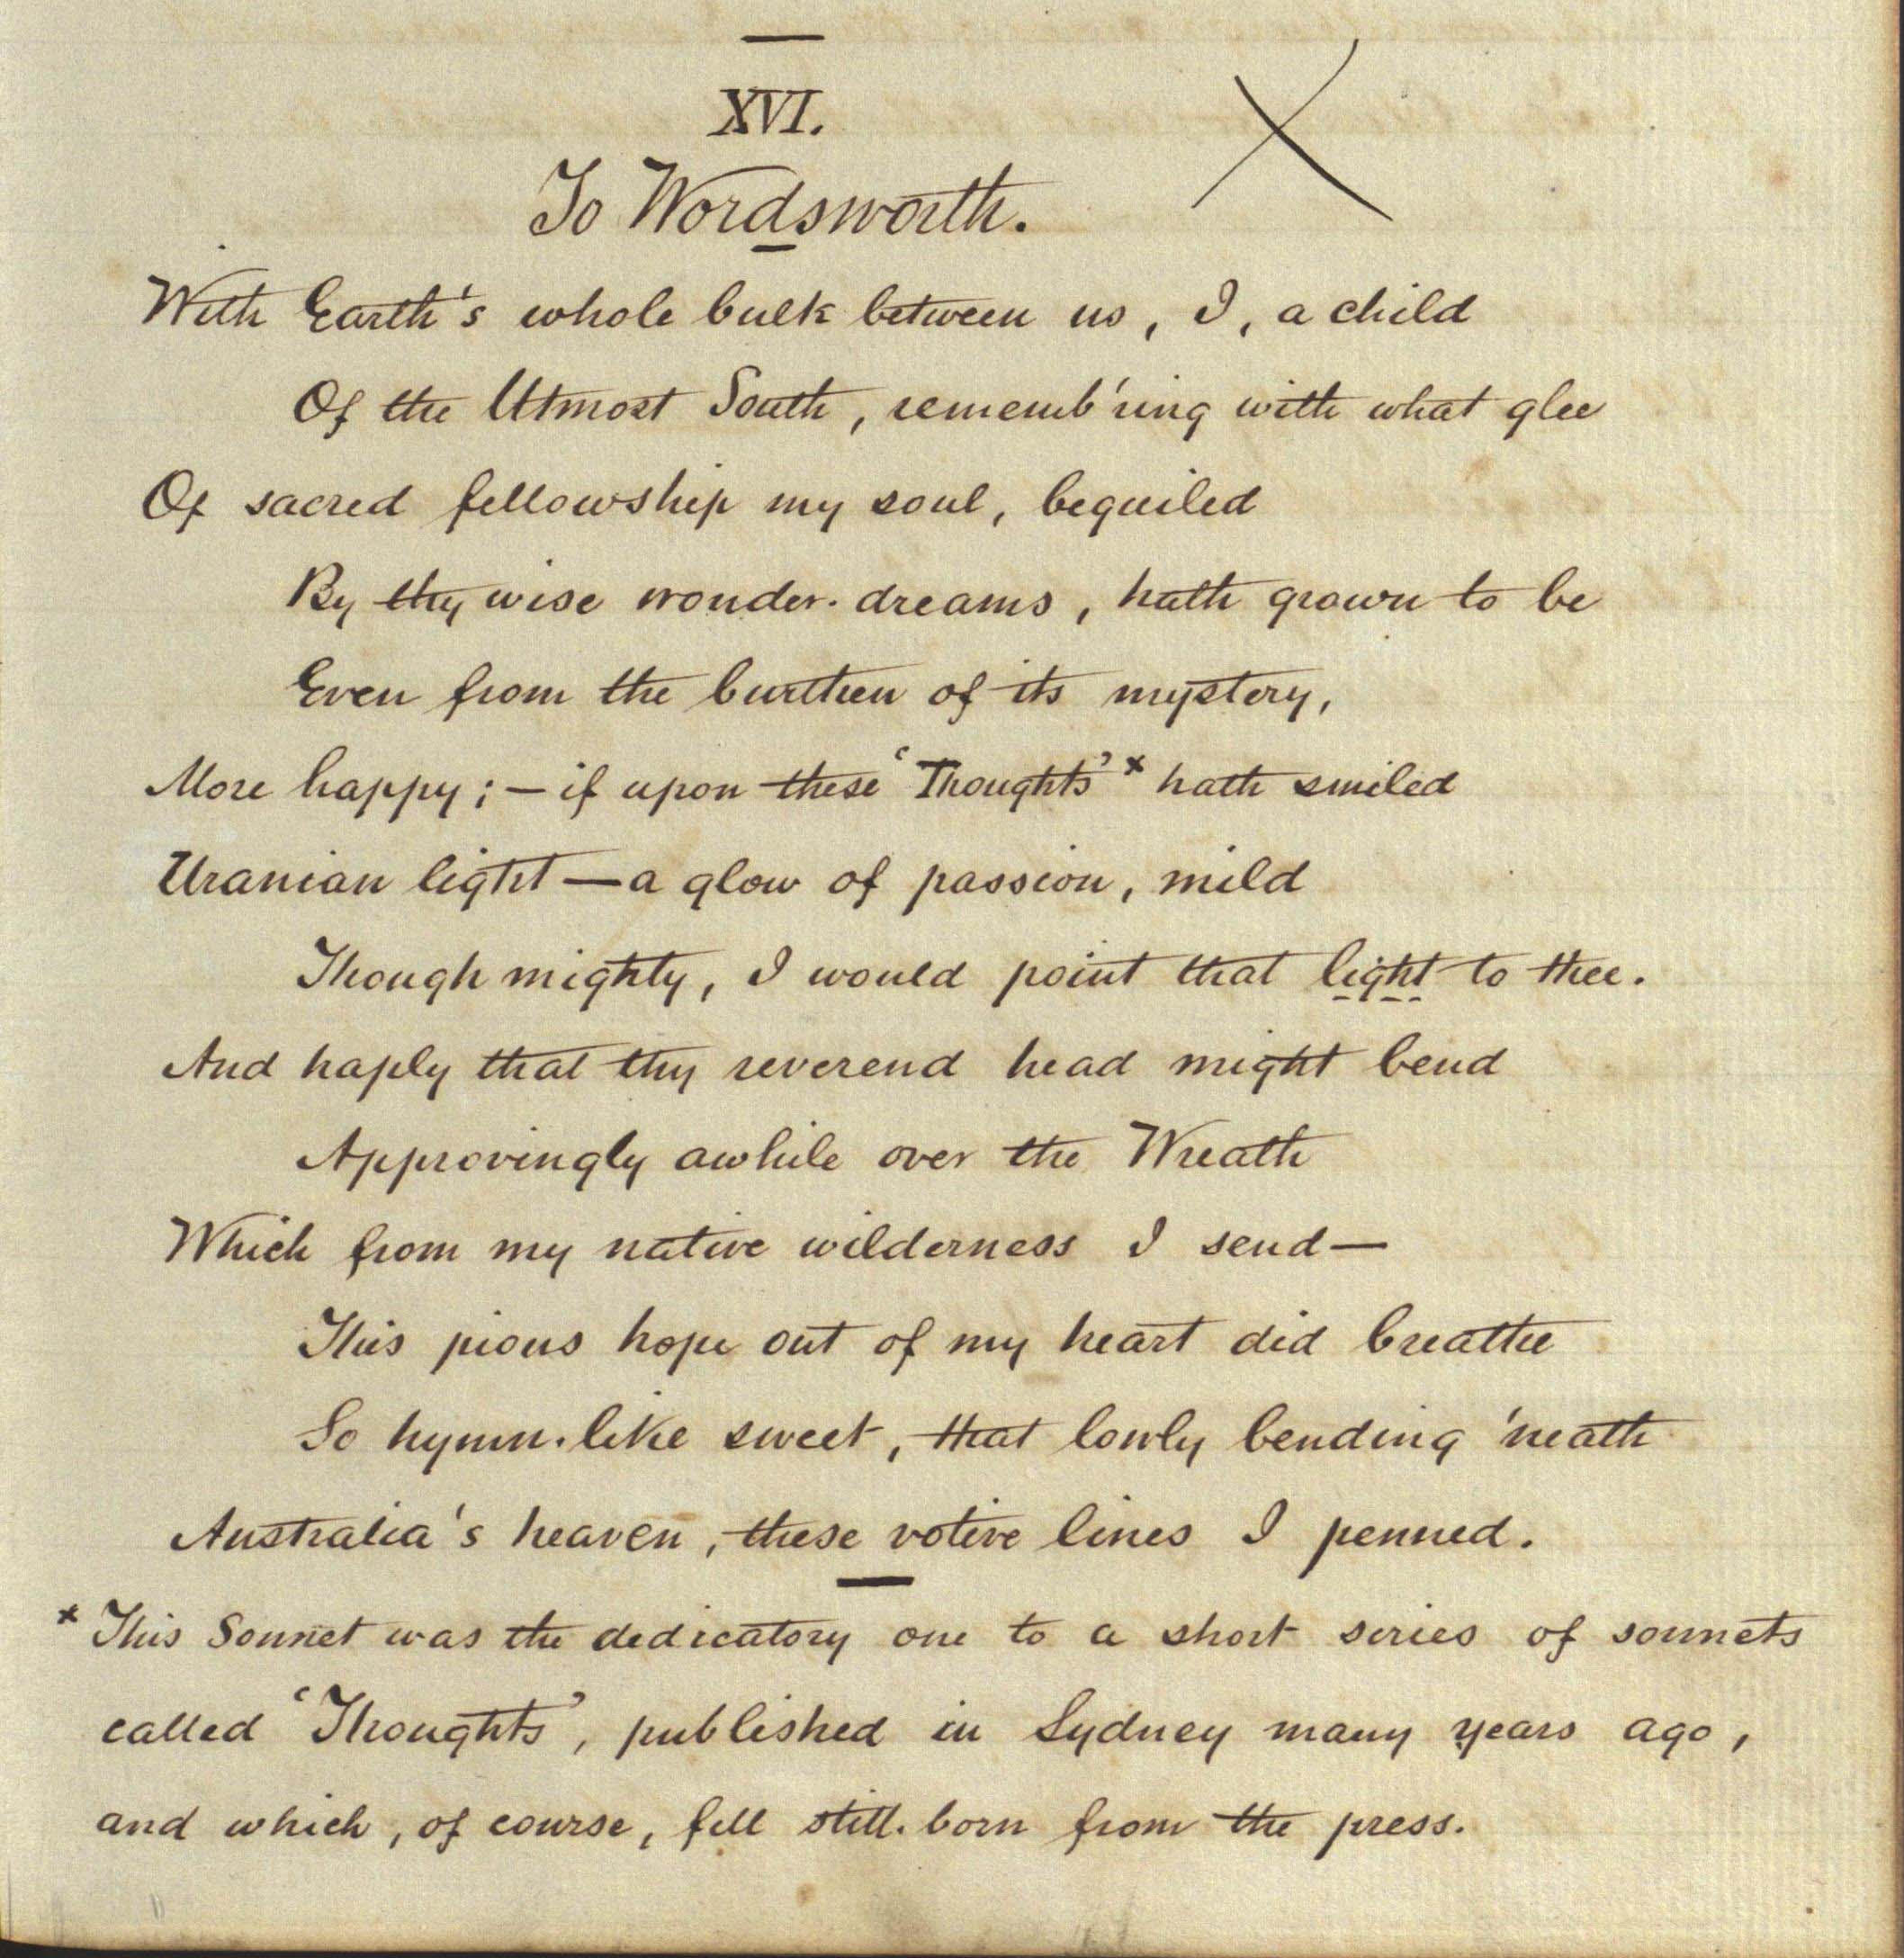 XVI.
To Wordsworth.
With Earth's whole bulk between us, I, a child
Of the Utmost South, rememb'ring with what glee
Of sacred fellowship my soul, beguiled
By thy wise wonder-dreams, hath grown to be
Even from the burthen of its mystery,
More happy; — if upon these 'Thoughts' x hath smiled
Uranian light — a glow of passion, mild
Though mighty, I would point that light to thee.
And haply that thy reverend head might bend
Approvingly awhile over the Wreath
Which from my native wilderness I send —
This pious hope out of my heart did breathe
So hymn-like sweet, that lowly bending 'neath
Australia's heaven, these votive lines I penned.
x This Sonnet was the dedicatory one to a short series of sonnets
called 'Thoughts', published in Sydney many years ago,
and which, of course, fell still-born from the press.